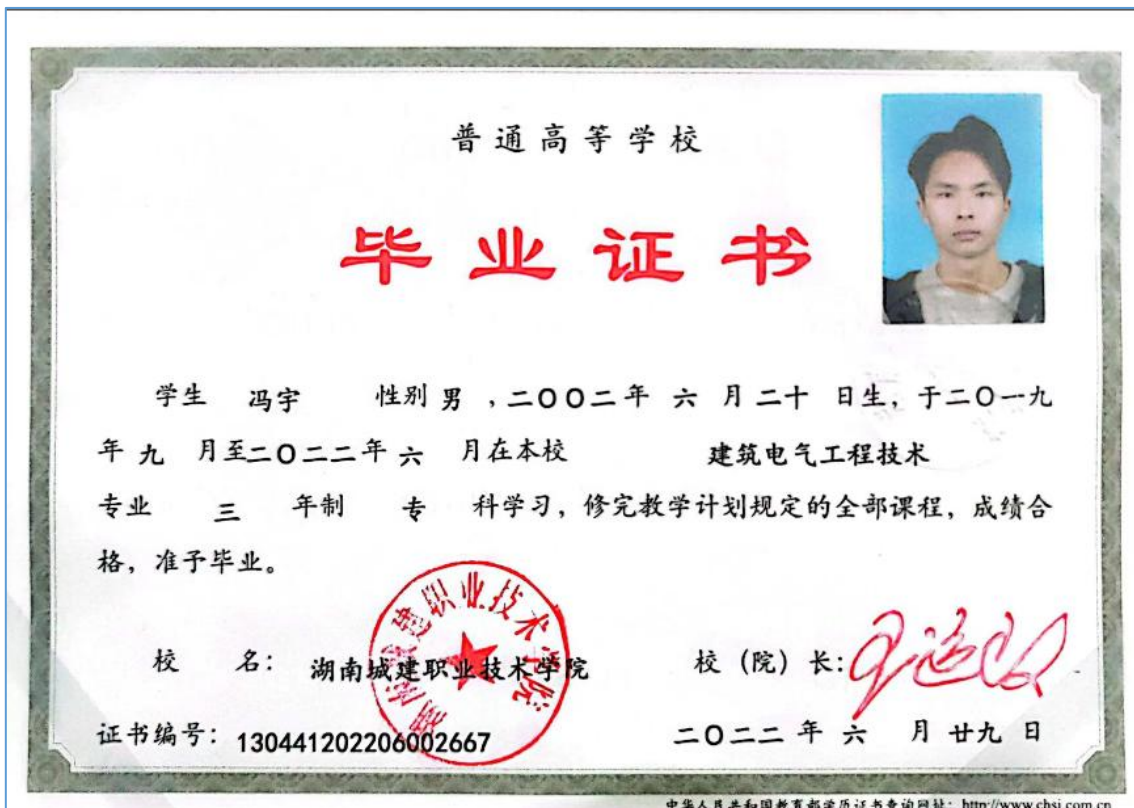 普通高等学校
毕业证书
学生 冯宇 性别 男 ,二〇〇二年 六 月 二十 日生, 于二〇一九
年 九 月至二〇二二年 六 月在本校 建筑电气工程技术
专业 三 年制 专 科学习, 修完教学计划规定的全部课程, 成绩合
格, 准予毕业。
湖南城建职业技术学院
校 名: 湖南城建职业技术学院 校(院)长:
证书编号: 130441202206002667 二〇二二 年 六 月 廿九 日
中华人民共和国教育部学历证书查询网址: http://www.chsi.com.cn